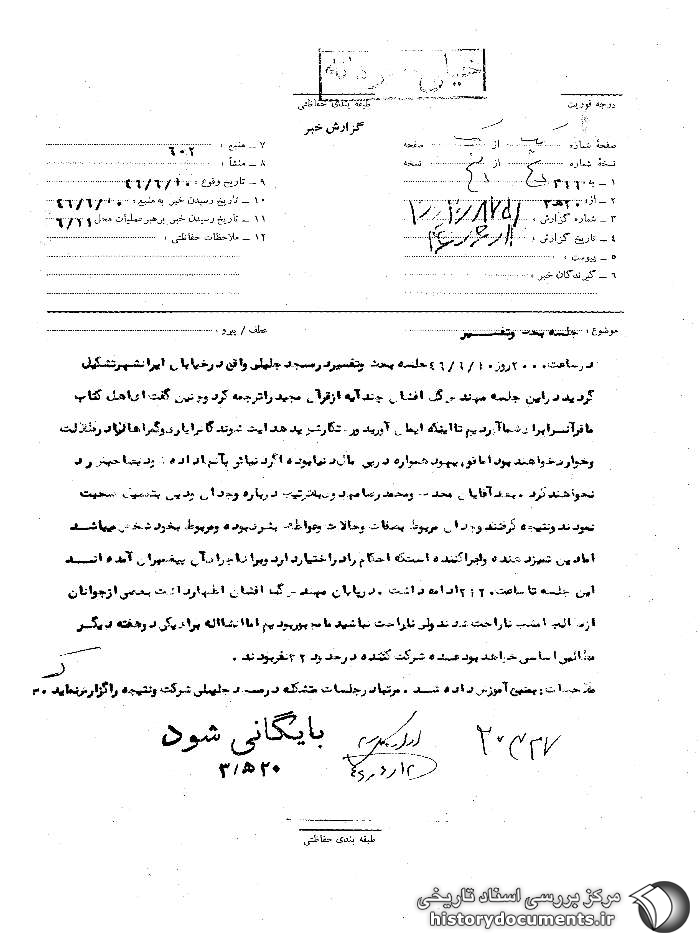 خیلی محرمانه
درجه فوریت
طبقه بندی حفاظتی
گزارش خبر
صفحهٔ شماره یک از یک صفحه
نسخهٔ شماره از نسخه
۱ – به: ۳۱۶
۲ – از: ۲۰ه۳
۳ – شماره گزارش:
۴ – تاریخ گزارش:
۵ – پیوست:
۶ – گیرندگان خبر:
۷ – منبع: ۶۰۲
۸ – منشأ:
۹ – تاریخ وقوع: ۴۶/۶/۱۰
۱۰ – تاریخ رسیدن خبر به منبع: ۴۶/۶/۱۰
۱۱ – تاریخ رسیدن خبر برهبر عملیات محل: ۶/۱۱
۱۲ – ملاحظات حفاظتی:
موضوع: جلسه بحث وتفسیر
عطف / پیرو:
درساعت ۲۰۰۰ روز ۴۶/۶/۱۰ جلسه بحث وتفسیر درمسجد جلیلی واقع درخیابان ایرانشهر تشکیل
گردید دراین جلسه مهندس افشار چند آیه ازقرآن مجید را ترجمه کرد وچنین گفت ای اهل کتاب
ماقرآن را برا شما آوردیم تا اینکه ایمان آورید و رستگار شوید هدایت شوندگان را یاری وگمراهان را در ضلالت
وخواری خواهند بود اما قوم یهود همواره درپی مال دنیا بوده اگر دنیا
نخواهند کرد . بعد آقایان محمد رضا بترتیب درباره وجدان ودین بتفصیل صحبت
نمودند ونتیجه گرفتند وجدان مربوط بصفات وحالات وعواطف بشر بوده ومربوط بخود شخص میباشد
اما دین تمیز دهنده واجرا کننده است که احکام را در اختیار دارد وبرای اجرای آن پیغمبران آمده اند
این جلسه تا ساعت ۲۱۲۰ ادامه داشت . درپایان مهندس افشار اظهار داشت بعضی ازجوانان
از مطالب امشب ناراحت شدند ولی ناراحت نباشید ما مجبور بودیم اما انشااله برای یکی دو هفته دیگر
مطالبی اساسی خواهد بود عده شرکت کننده درحدود ۳۲ نفر بودند .
ملاحظات: بمنبع آموزش داده شد . مرتبا درجلسات متشکله درمسجد جلیلی شرکت ونتیجه را گزارش نماید
بایگانی شود
۲۰ه۳
طبقه بندی حفاظتی
مرکز بررسی اسناد تاریخی
historydocuments.ir